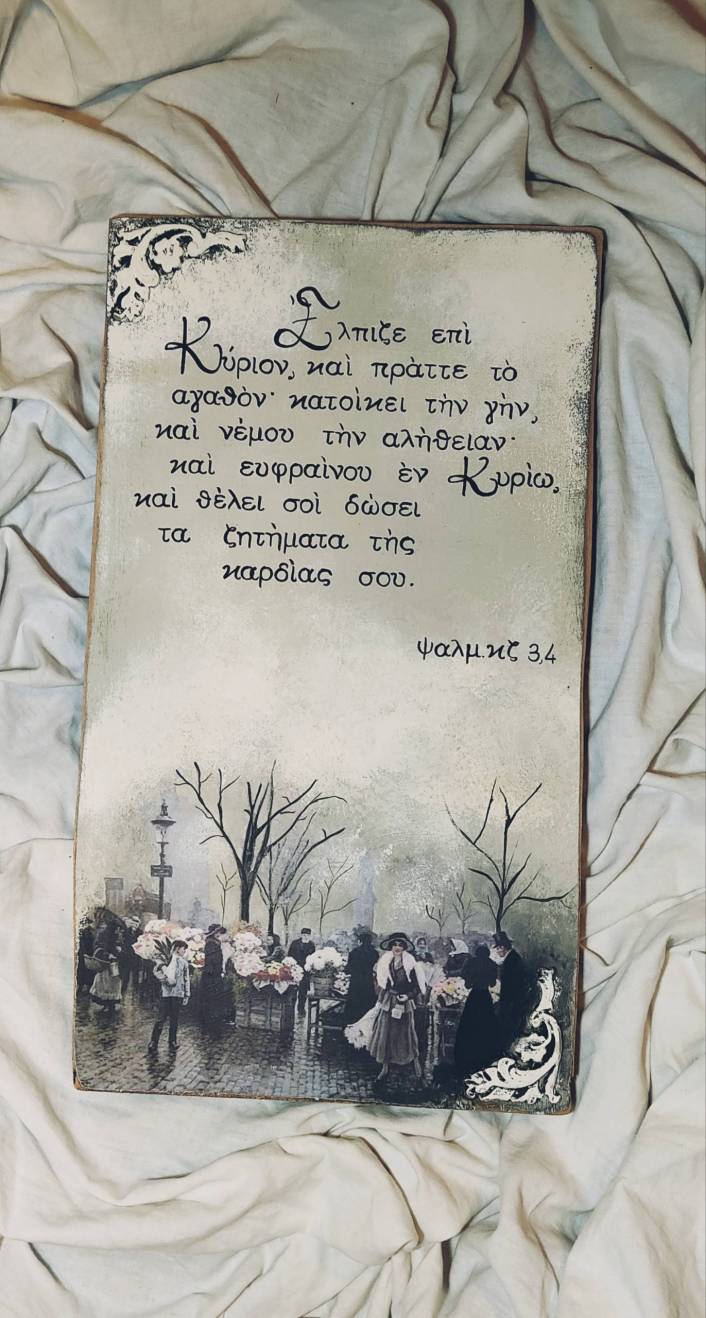 Ἔλπιζε επὶ
Κύριον, καὶ πρὰττε τὸ
αγαθὸν· κατοὶκει τὴν γὴν,
καὶ νέμου τὴν αλὴθειαν·
καὶ ευφραὶνου ἐν Κυρὶω,
καὶ θὲλει σοὶ δὼσει
τα ζητὴματα τὴς
καρδὶας σου.
ψαλμ. κζ 3,4